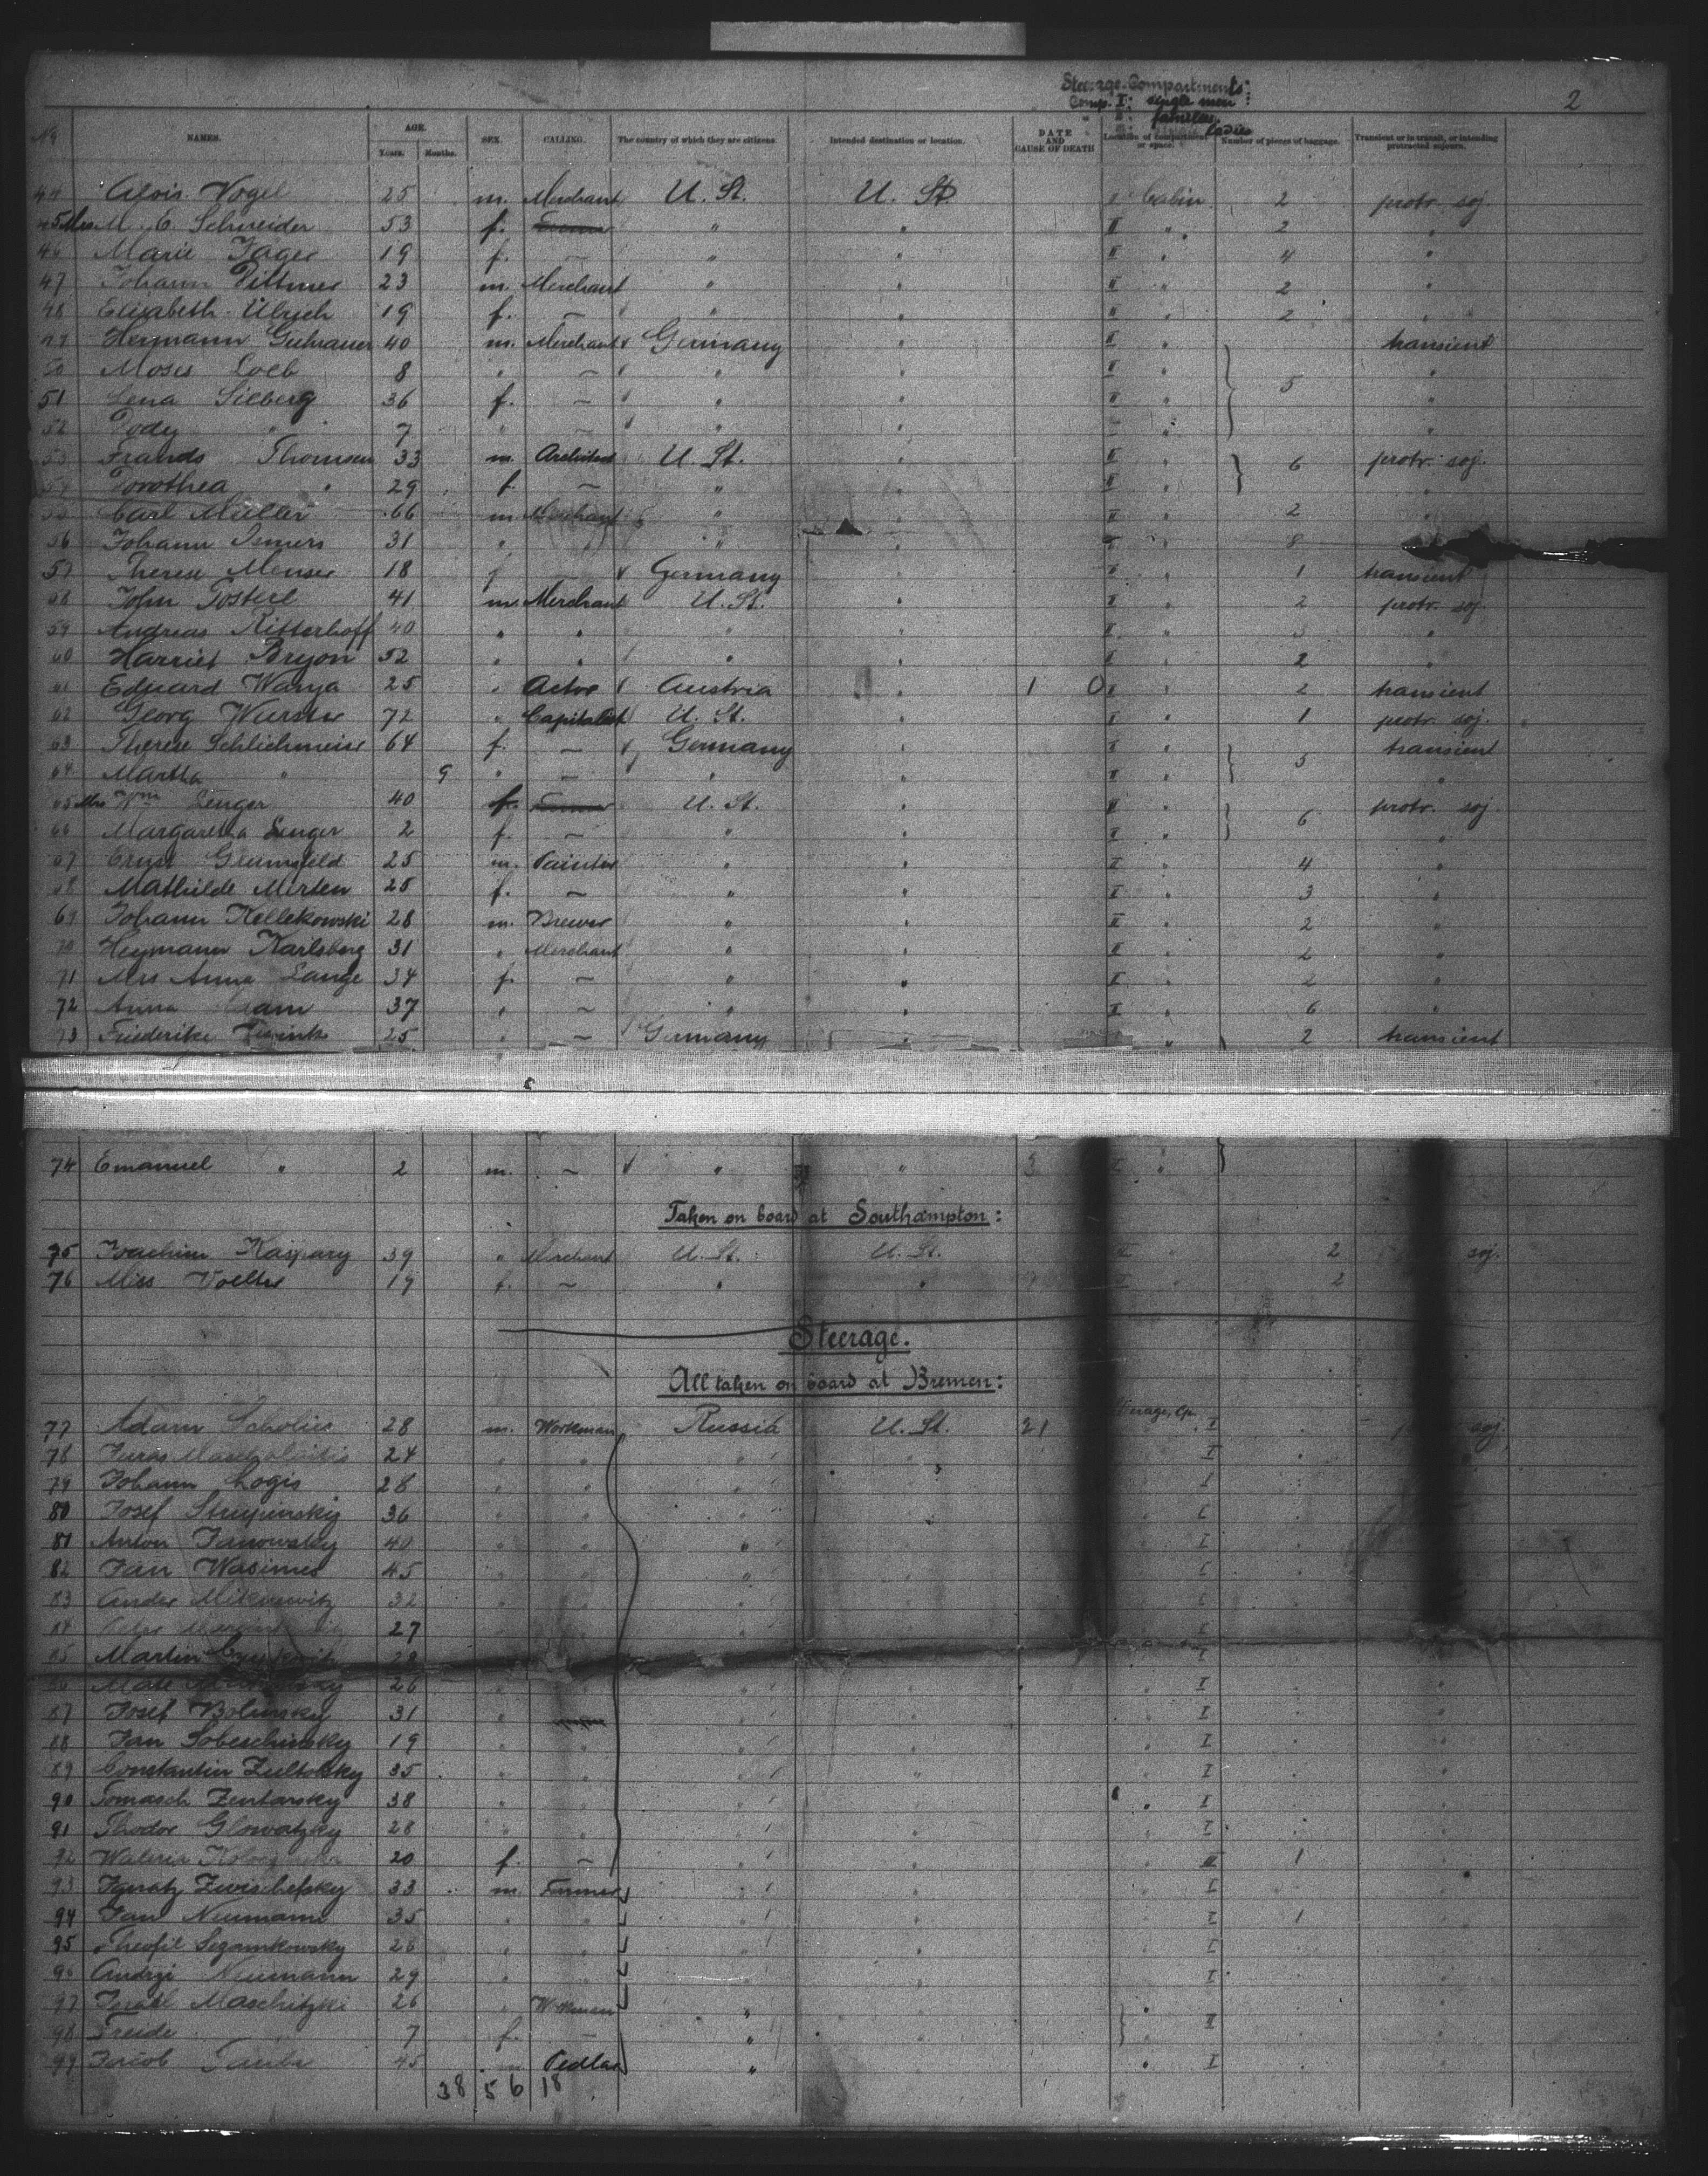 Steerage Compartments:
Comp. I: single men
" II: families
ladies
2
No NAMES. AGE. Years. Months. SEX. CALLING. The country of which they are citizens. Intended destination or location. DATE AND CAUSE OF DEATH Location of compartment or space. Number of pieces of baggage. Transient or in transit, or intending protracted sojourn.
44 Alois Vogel 25 m. Merchant U. St. U. St. II Cabin 2 protr. soj.
45 Mrs. M. C. Schneider 53 f. " " II " 2 "
46 Marie Jäger 19 f. — " " II " 4 "
47 Johann Dittmer 23 m. Merchant " " II " 2 "
48 Elisabeth Ulrich 19 f. — " " II " 2 "
49 Hermann Guhrauer 40 m. Merchant Germany " II " transient
50 Moses Loeb 8 " — " " II " 5 "
51 Lena Silberg 36 f. — " " II " "
52 Dody " 7 " — " " " "
53 Frands Thomsen 33 m. Architect U. St. " II " 6 protr. soj.
54 Dorothea " 29 f. — " " II " "
55 Carl Müller 66 m. Merchant " " II " 2 "
56 Johann Ismers 31 " " " " " 8
57 Therese Menser 18 f — Germany " II " 1 transient
58 John Tosteel 41 m. Merchant U. St. " II " 2 protr. soj.
59 Andreas Ritterhoff 40 " " " " II " 3 "
60 Harriet Bryon 52 " " " " II " 2 "
61 Eduard Warya 25 " Actor Austria " 1 0 II " 2 transient
62 Georg Wurster 72 " Capitalist U. St. " II " 1 protr. soj.
63 Therese Schlichmeier 64 f. — Germany " II " 5 transient
64 Martha " 9 " — " " II " "
65 Mrs Wm Senger 40 f. U. St. " II " 6 protr. soj
66 Margaretha Senger 2 f. — " " II " "
67 Ernst Grumsfeld 25 m. Painter " " II " 4 "
68 Mathilde Mirten 25 f. — " " II " 3 "
69 Johann Kellekowski 28 m. Brewer " " II " 2 "
70 Heymann Karlsberg 31 " Merchant " " II " 2 "
71 Mrs Anna Lange 34 f. — " " II " 2 "
72 Anna 37 " — " " II " 6 "
73 Friederike 25 " — Germany " " 2 transient
74 Emanuel " 2 m. — " " 3 II "
Taken on board at Southampton:
75 Joachim Kaspary 39 " Merchant U. St. U. St. II " 2 soj.
76 Miss Voelker 19 f. — " " II " 2
Steerage.
All taken on board at Bremen:
77 Adam Scholies 28 m. Workman Russia U. St. 21 Steerage, Cp. I soj.
78 Juras 24 " " " " I
79 Johann Logis 28 " " " " I
80 Josef Strupinsky 36 " " " " I
81 Anton Janowsky 40 " " " I
82 Jan Wasimes 45 " " " I
83 Ander Mikniewitz 32 " " " I
84 27 " I
85 Martin 28 I
86 Mate 26 " " " I "
87 Josef Bolinsky 31 " " " I "
88 Jan Sobeschinsky 19 " " " " I "
89 Constantin Zultolsky 35 " " " " I "
90 Tomasch Zentarsky 38 " " " " I
91 Thodor Glowatzky 28 " " " " I
92 Waleria 20 f. — " " III 1
93 Ignatz Zwischefsky 33 m. Farmer " " I
94 Jan Neumann 35 " " " " I 1
95 Theofil Segamkowsky 26 " " " " I
96 Andrzi Neumann 29 " " " " I
97 Israel Maschitzki 26 " Workman " " " II
98 Freide " 7 f. — " " "
99 Jacob Taube 45 m Pedlar " " " I
38 5 6 18